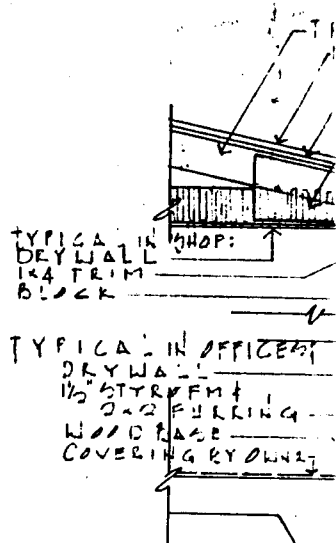 TYPICAL IN SHOP:
DRYWALL
1x4 TRIM
BLOCK
TYPICAL IN OFFICES:
DRYWALL
1½" STYROFM &
2x2 FURRING
WOOD BASE
COVERING BY OWNR